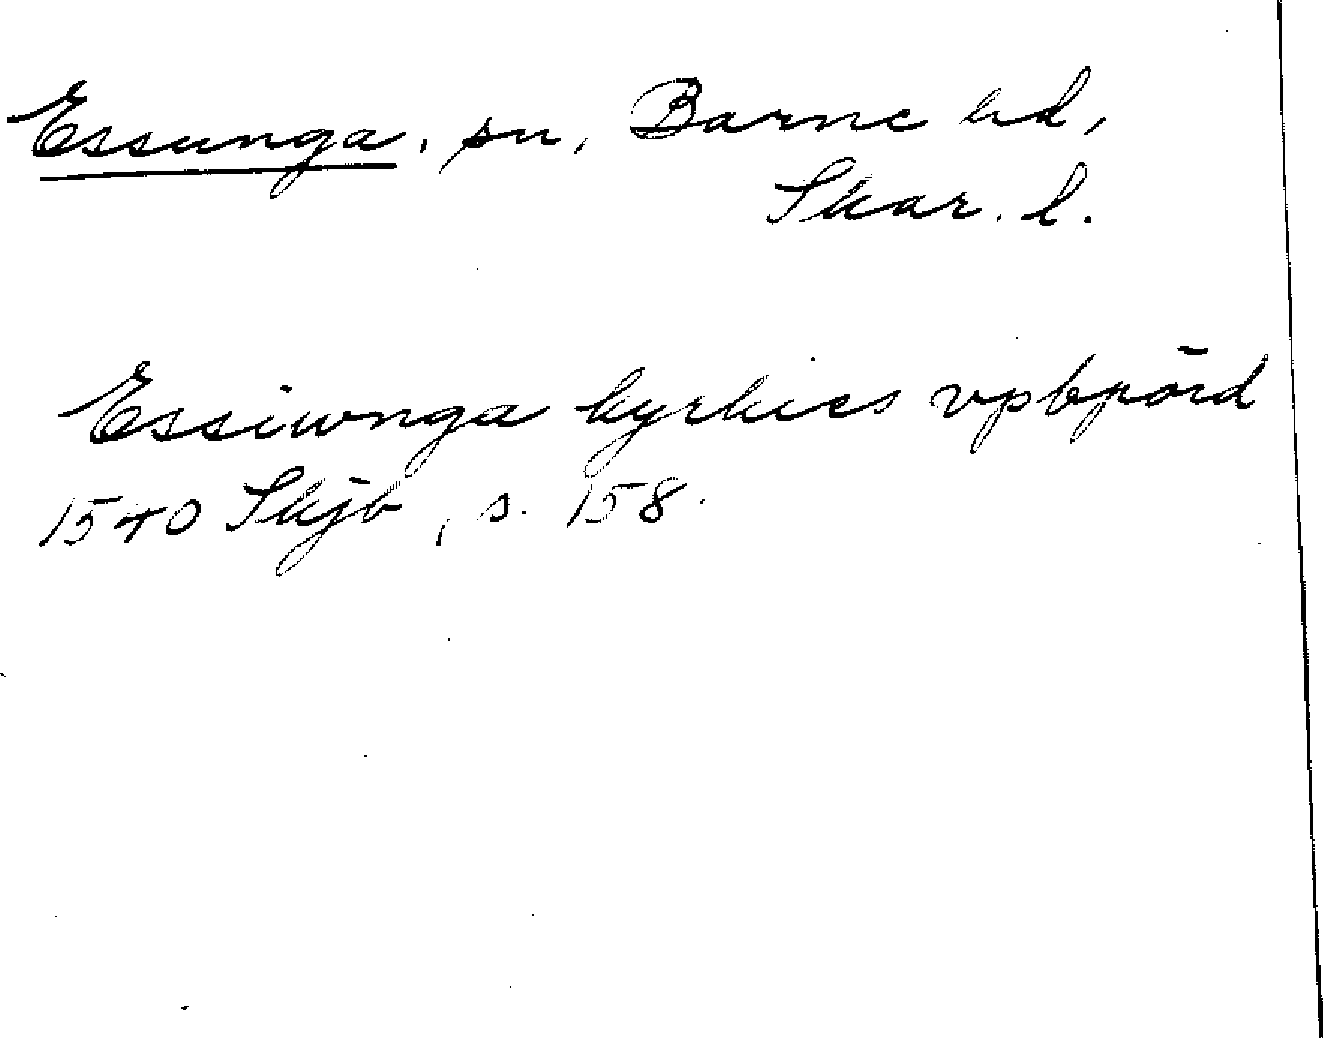 Essunga, sn, Barne hd,
Skar. l.
Essiwnga kyrkies vpbpörd
1540 Skjb, s. 158.